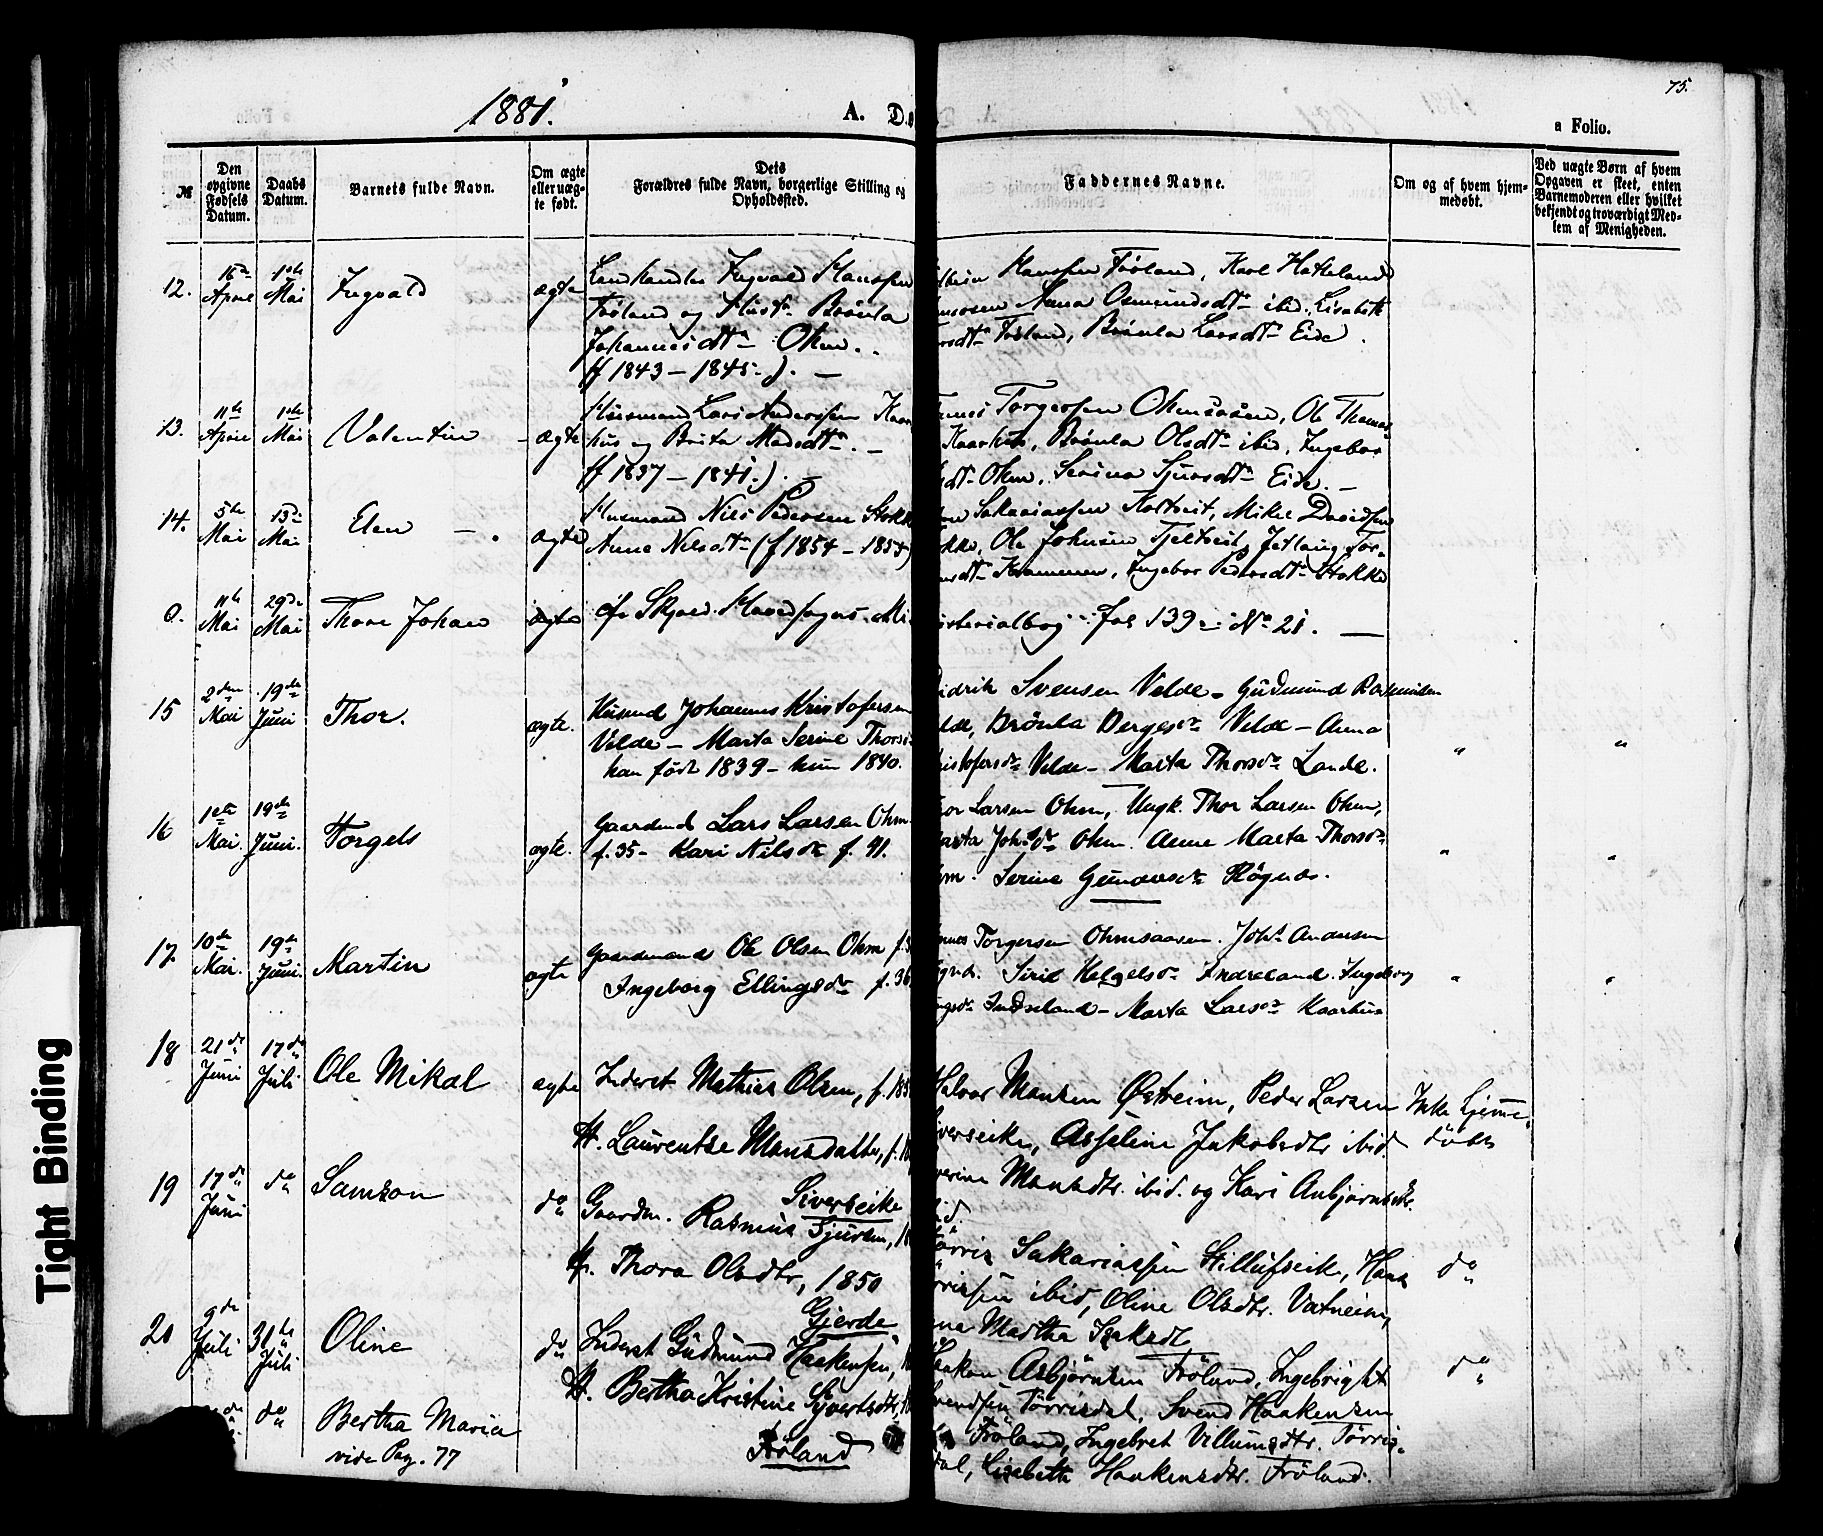 75.
1881.
A. Dø
a Folio.
№
Den opgivne Fødsels Datum.
Daabs Datum.
Barnets fulde Navn.
Om ægte eller uægte født.
Dets Forældres fulde Navn, borgerlige Stilling og Opholdssted.
Faddernes Navne.
Om og af hvem hjemmedøbt.
Ved uægte Børn af hvem Opgaven er skeet, enten Barnemoderen eller hvilket bekjendt og troværdigt Medlem af Menigheden.
12. 16de April 1ste Mai Ingvald ægte Ingvald Hanssen
Frøland og Hust. Brønla
Johannesdtr Ohm.
(f 1843 – 1845.). –
Hanssen Frøland, Karl Hakeland
Anna Osmundsdtr ibid. Lisabeth
Frøland, Brønla Larsdtr Eide.
13. 11te April 1ste Mai Valentin – ægte Husmand Lars Anderssen Kaar
hus og Brita Madsdtr. –
(f 1837 – 1841.). –
Torgersen Ohmsaasen, Ole Thomas-
Kaarhus, Brønla Olsdtr ibid, Ingebor
Ohm, Serina Sjursdtr Eide. –
14. 5te Mai 15de Mai Elen – ægte Husmand Nils Pedersen Stokk
Anne Nilsdtr (f 1854 – 1854)
Sakariassen Kortveit, Mikel Davidsen
Ole Johnsen Tjeltveit, Jetlaug Tor-
Krammen, Ingebor Pedersdtr Stokke
0. 11te Mai 29de Mai Thore Johan ægte cfr Skjold Hovedsogns Mi
isterialbog – fol 139 – No 21. –
15 2den Mai 19de Juni Thor. ægte. Husmd Johannes Kristofersen
Velde – Marta Serine Thors-
han født 1839 – hun 1840.
idrik Svensen Velde – Gudmund Rasmusen
elde, Brønla Bergesdr Velde – Anna
ristofersdr Velde – Marta Thorsdr Lande.
16 1ste Mai. 19de Juni. Torgels ægte. Gaardmd Lars Larsen Ohm
f. 35 – Kari Nilsdr f. 41.
or Larsen Ohm, Ungk. Thor Larsen Ohm,
arta Johsdr Ohm. Anne Marta Thorsdr
hm. Serine Gundersdr Røgnds.
17 10de Mai. 19de Juni. Martin ægte Gaardmand Ole Olsen Ohm f. 3
Ingeborg Ellingsdr f. 36
nnes Torgersen Ohmsaasen. Johs Andersen
Siril Helgelsdr Indreland. Ingeborg
ingsdr Indreland – Marta Larsdr Kaarhus
18 21de Juni 17de Juli Ole Mikal ægte Inderst Mathias Olsen, f. 185
H. Laurentse Monsdatter, f. 18
Siverseike
Halvor Monsen Østreim, Peder Larsen
iverseike, Asseline Jakobsdtr ibid.
verine Monsdtr. ibid. og Kari Anbjørnsdtr.
id
Ikke hjemme-
døbt
19 17de Juni do Samson do Gaardm. Rasmus Sjursen, 18
H. Thora Olsdtr, 1850
Gjerde
Tørris Sakariassen Stillufseik, Hans
ørrissen ibid, Oline Olsdtr. Vatneim,
Martha
do
20 9de Juli 31te Juli Oline do Inderst Gudmund Haakensen, 18
H. Bertha Kristine Syvertsdtr, 18
Frøland
Haakon Asbjørnsen Frøland, Ingebright
vendsen Tørrisdal, Svend Haakensen
Frøland, Ingebret Villumsdtr. Tørris-
dal, Lisebeth Haakensdtr. Frøland.
do
do Bertha Maria
vide Pag. 77
Tight Binding